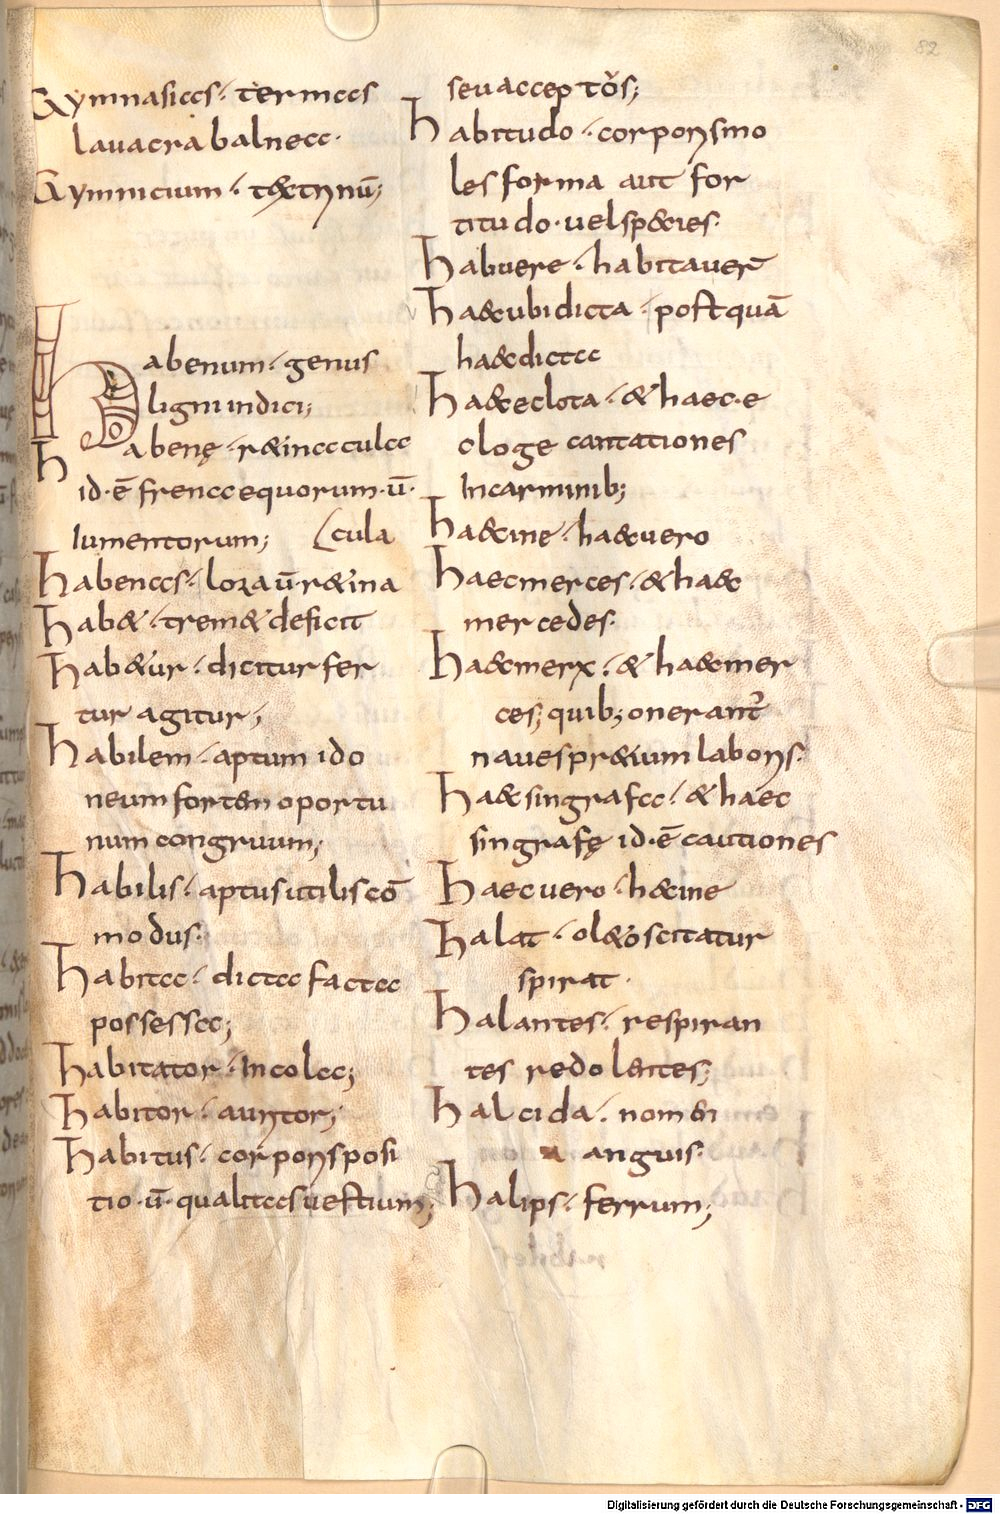 82
Gymnasias· termas
lauacra balnea·
Gymnicium· t&trinū;
Habenum· genus
ligni indici;
Habenę· r&inacula
id·ē frena equorum·ū·
iumentorum; (cula
Habenas· lora ū r&ina
Hab&· trem& deficit
Hab&ur· dicitur fer
tur agitur;
Habilem· aptum ido
neum fortem oportu
num congruum;
Habilis· aptus utilis cō
modus·
Habita· dicta facta
possessa;
Habitator· Incola;
Habitor· auritor;
Habitus· corporis posi
tio·ū· qualitas uestium;
seu acceptos;
Habitudo· corporis mo
les forma aut for
titudo· uel sp&ies·
Habuere· habitauer̄
Ha&c ubi dicta· postquā
ha&c dicta
Ha&c eclota· & haec·e
cloge cantationes
Incarminib;
Ha&cine· ha&c uero
Haec merces· & ha&c
mercedes·
Ha&c merx· & ha&c mer
ces; quib; onerant̄
naues pr&ium laboris·
Ha&c singrafa· & haec
singrafę id·ē cautiones
Haec uero· h&cine
Halat· ol& oscitatur
spirat·
Halantes· respiran
tes redolentes;
Halcida· nomen
anguis·
Halips· ferrum;
Digitalisierung gefördert durch die Deutsche Forschungsgemeinschaft - DFG